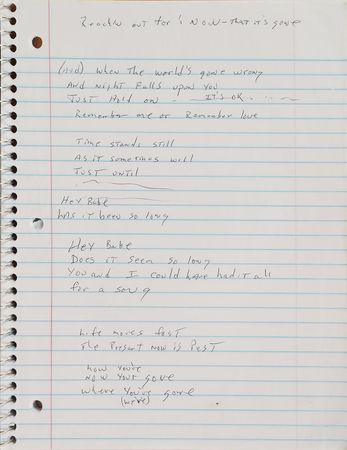 Reachin out for / Now - that it's gone
(And) When the world's gone wrong
And night falls upon you
Just Hold on - It's ok
Remember me or Remember love
Time stands still
As it sometimes will
Just until
Hey Babe
has it been so long
Hey Babe
Does it seem so long
You and I could have had it all
for a song
Life moves fast
The Present now is Past
now you're
Now your gone
where you've gone
(we're)